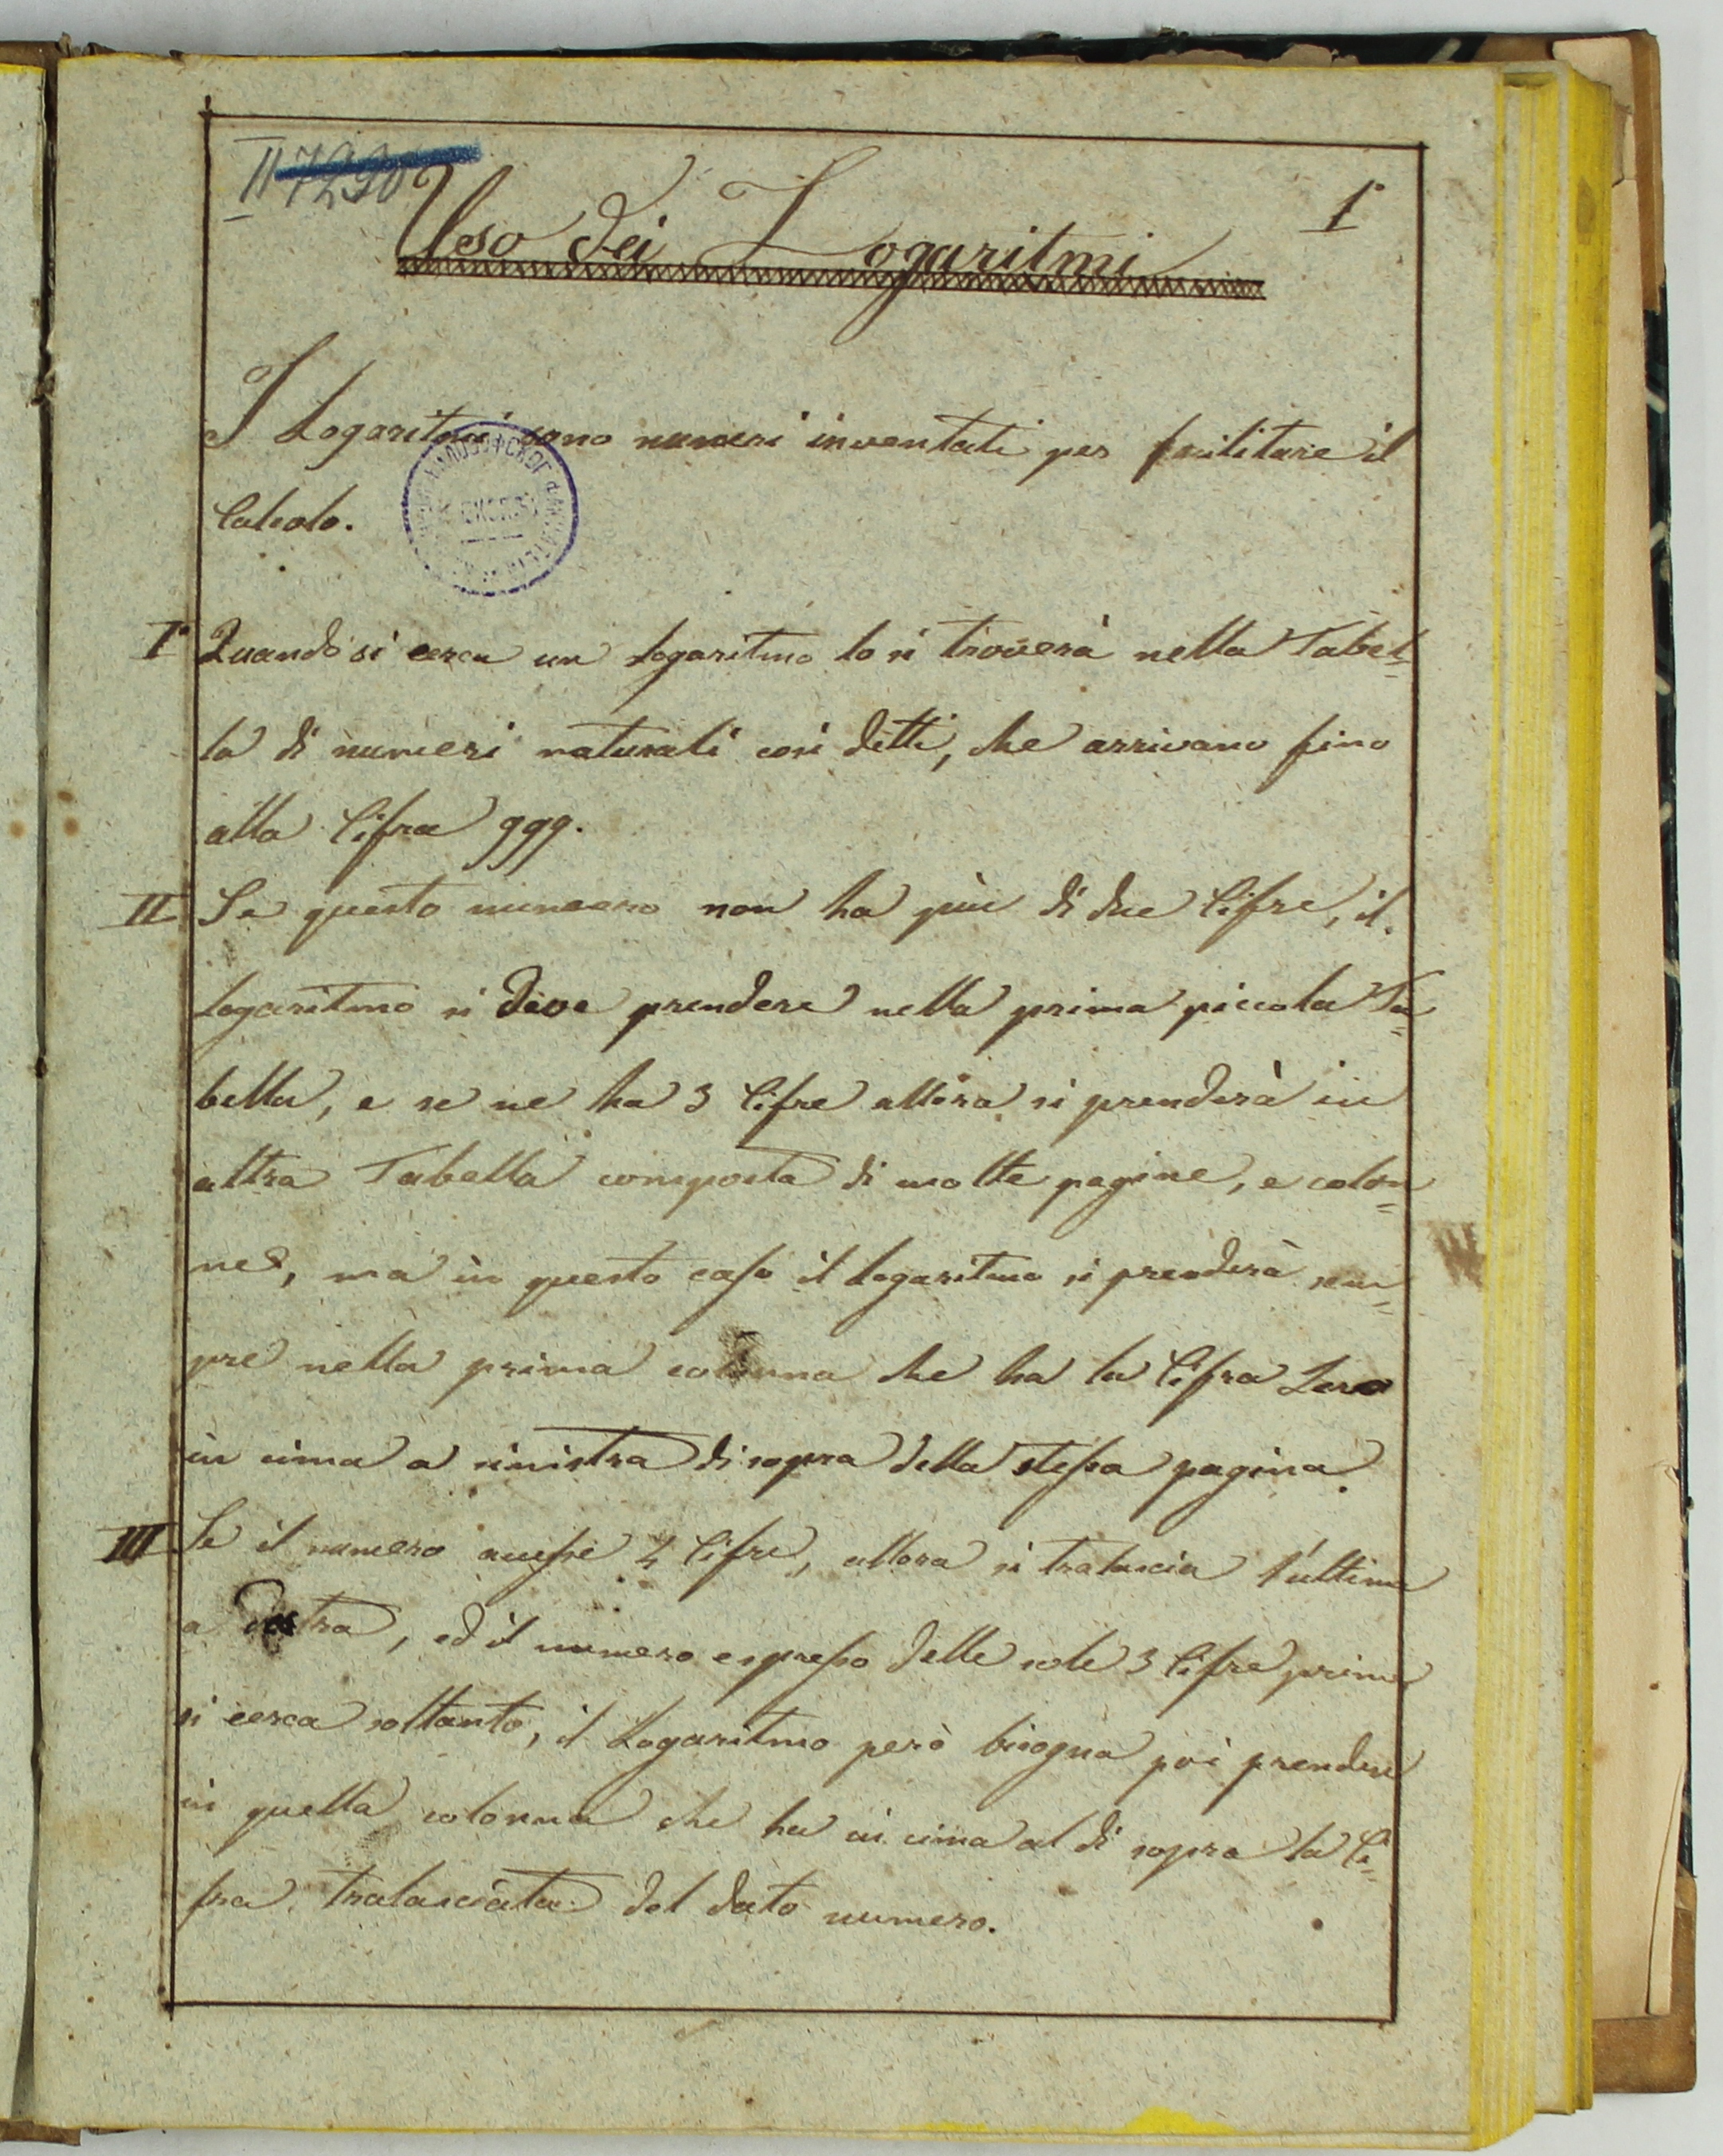 1.
Uso dei Logaritmi
I Logaritmi sono numeri inventati per facilitare il
Calcolo.
I.º Quando si cerca un logaritmo lo si troverà nella Tabel=
la di numeri naturali così detti, che arrivano fino
alla Cifra 999.
II. Se questo numero non ha più di due Cifre, il
logaritmo si deve prendere nella prima piccola Ta=
bella, e se ne ha 3 Cifre allora si prenderà in
altra Tabella composta di molte pagine, e colon=
ne, ma in questo caso il logaritmo si prenderà sem=
pre nella prima colonna che ha la Cifra Zero
in cima a sinistra di sopra della stessa pagina.
III. Se il numero avesse 4 Cifre, allora si tralascia l'ultima
a destra, ed il numero espresso delle sole 3 Cifre prime
si cerca soltanto, il Logaritmo però bisogna poi prendere
in quella colonna che ha in cima al di sopra la Ci=
fra tralasciata del dato numero.